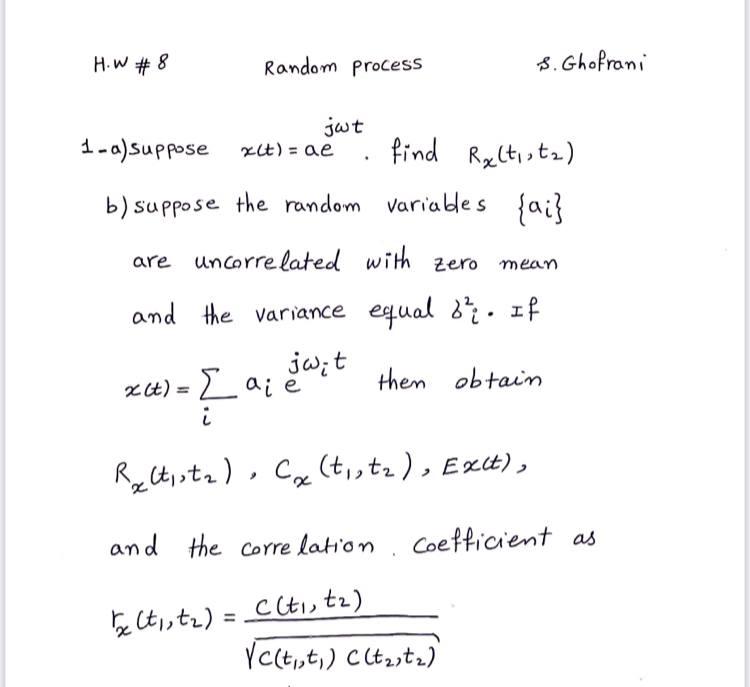 H.W # 8 Random process S. Ghofrani
1-a) suppose x(t) = ae^{jωt} . find Rₓ(t₁,t₂)
b) suppose the random variables {aᵢ}
are uncorrelated with zero mean
and the variance equal δ²ᵢ. If
x(t) = Σᵢ aᵢ e^{jωᵢt} then obtain
Rₓ(t₁,t₂) , Cₓ(t₁,t₂) , Ex(t) ,
and the correlation . coefficient as
rₓ(t₁,t₂) = C(t₁,t₂) / √(C(t₁,t₁) C(t₂,t₂))